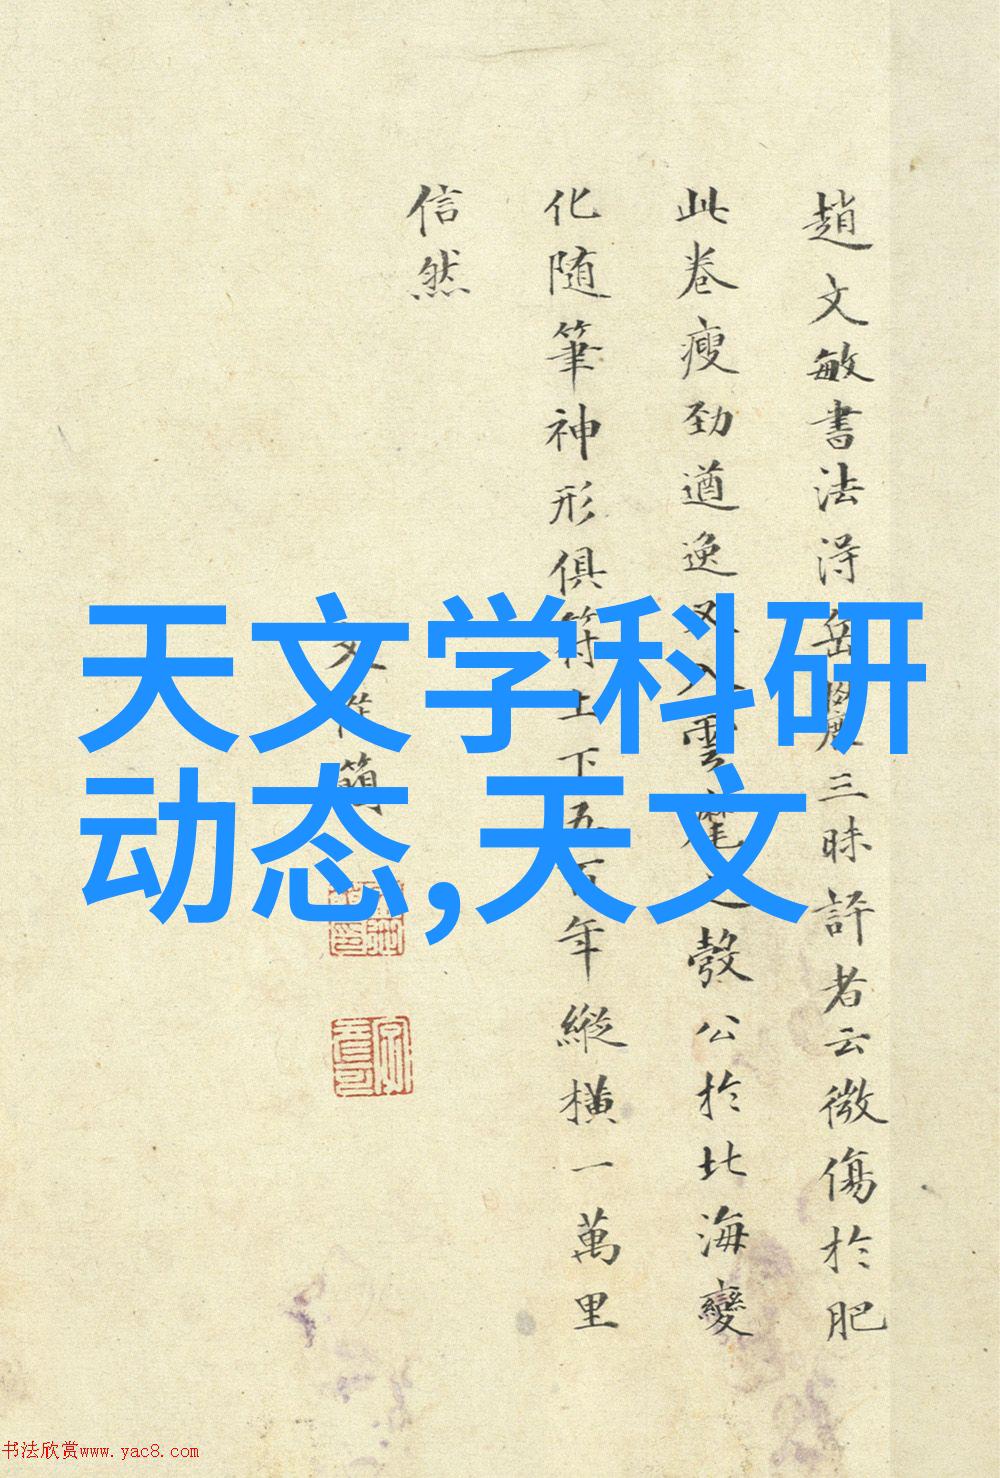 趙文敏書法得岳麓三昧評者云微傷於肥
此卷瘦勁遒逸又入雲麾之彀公於北海變
化随筆神形俱符上下五百年縱橫一萬里
信然
天文学科研
动态,天文
书法欣赏www.yac8.com